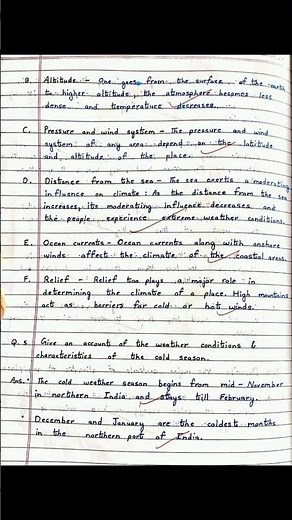 B. Altitude - One goes from the surface of the earth
to higher altitude, the atmosphere becomes less
dense and temperature decreases.
C. Pressure and wind system - The pressure and wind
system of any area depend on the latitude
and, altitude of the place.
D. Distance from the sea - The sea exerts a moderating
influence on climate: As the distance from the sea
increases, its moderating influence decreases and
the people experience extreme weather conditions.
E. Ocean currents - Ocean currents along with onshore
winds affect the climate of the coastal areas.
F. Relief - Relief too plays a major role in
determining the climate of a place. High mountains
act as barriers for cold or hot winds.
Q.5 Give an account of the weather conditions &
characteristics of the cold season.
Ans. • The cold weather season begins from mid-November
in northern India and stays till February.
• December and January are the coldest months
in the northern part of India.